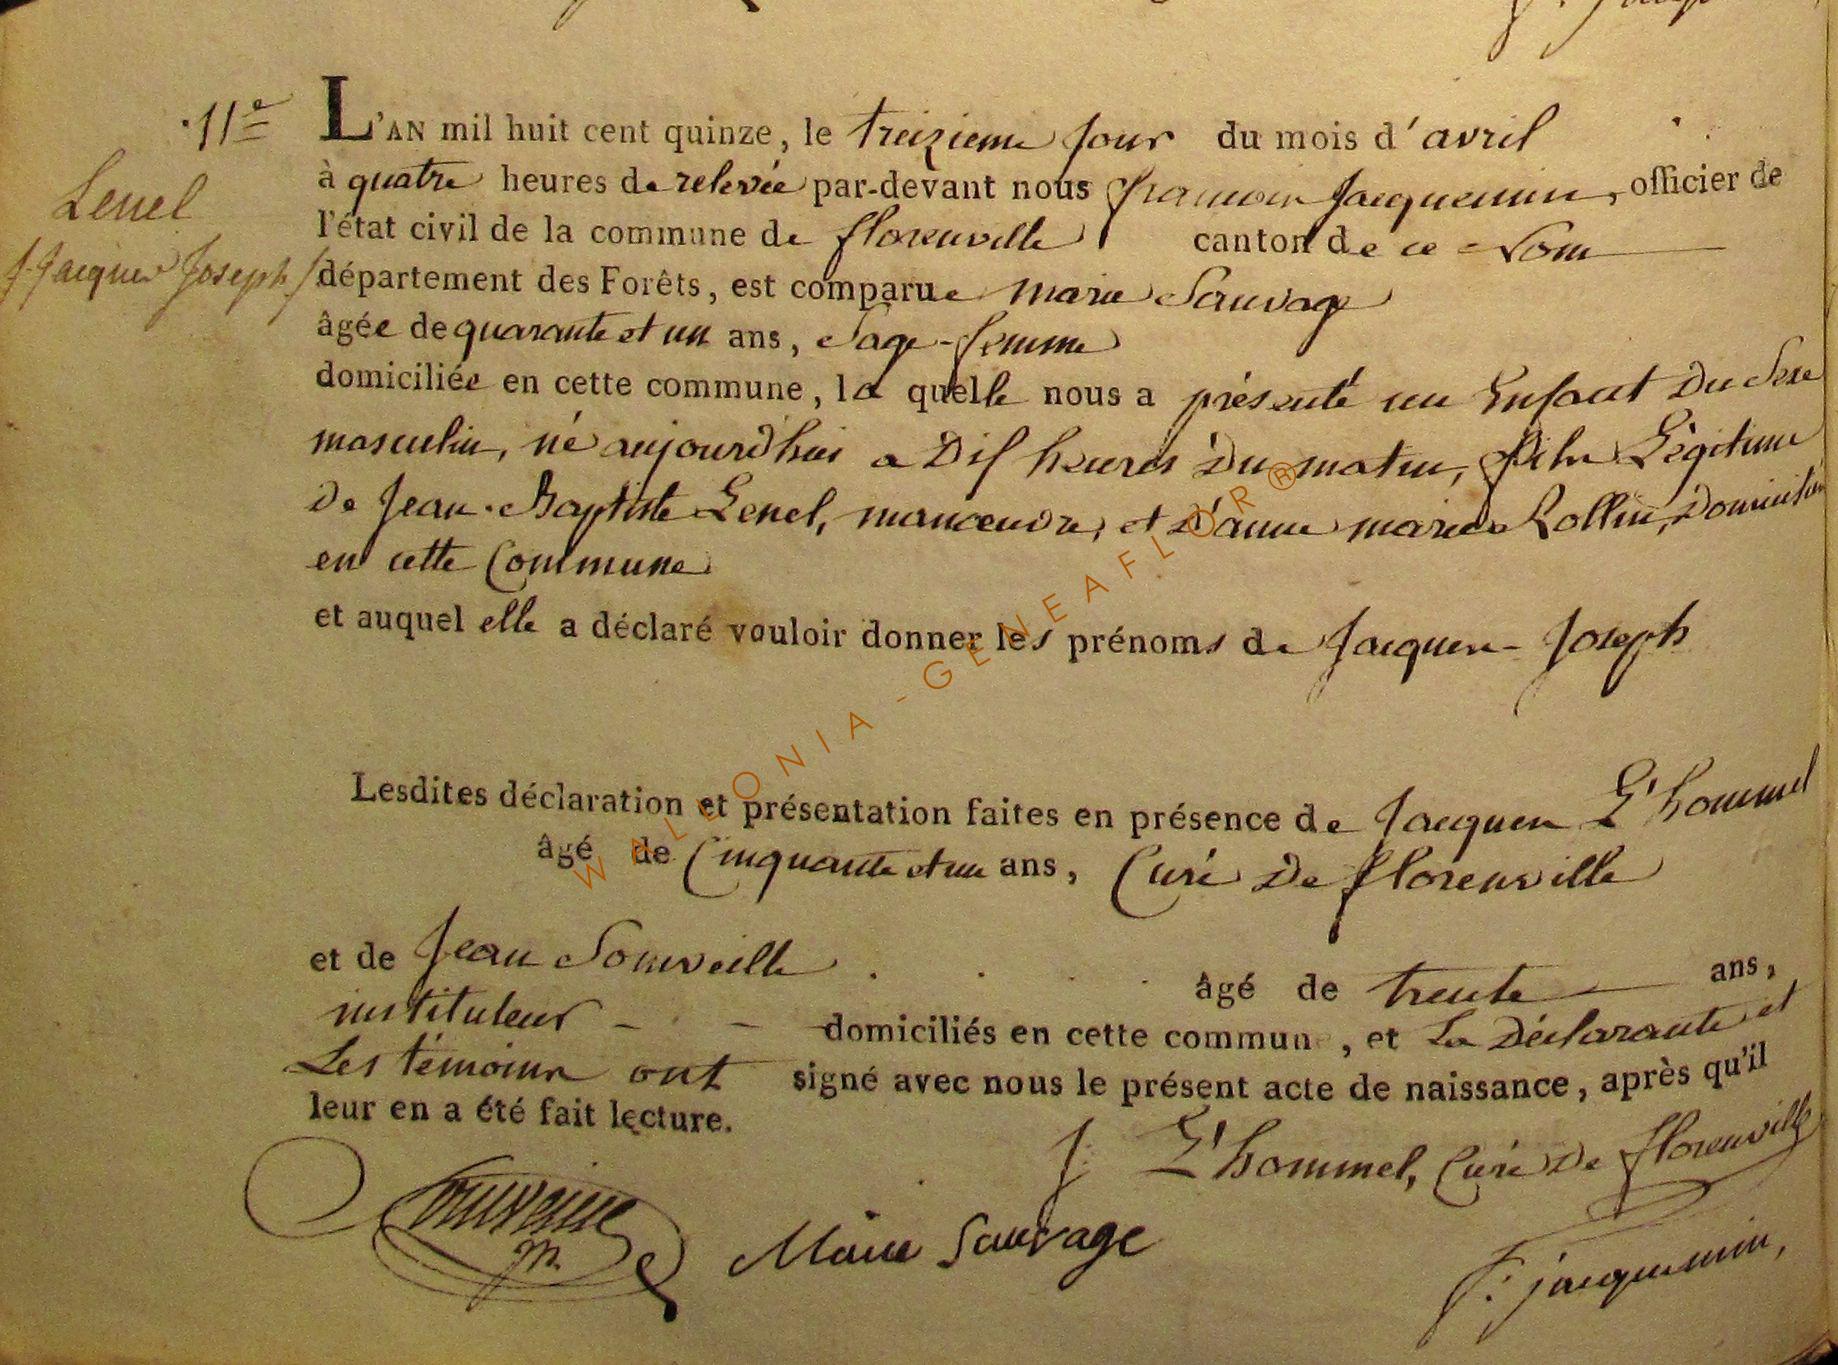 11e
Lenel
Jacques Joseph
L'AN mil huit cent quinze, le treizieme jour du mois d'avril
à quatre heures de relevée par-devant nous françois Jacquemin, officier de
l'état civil de la commune de florenville canton de ce Nom
département des Forêts, est comparue marie Sauvage
âgée de quarante et un ans, Sage-femme
domiciliée en cette commune, la quelle nous a présenté un Enfant Du Sexe
masculin, né aujourd'hui a Dix heures Du matin, fils Légitime
De Jean-Baptiste Lenel, manoeuvre, et D'anne marie Rollin, Domiciliés
en cette Commune
et auquel elle a déclaré vouloir donner les prénoms de Jacques-Joseph
Lesdites déclaration et présentation faites en présence de Jacques L'hommel
âgé de Cinquante et un ans, Curé De florenville
et de Jean Somveille âgé de trente ans,
instituteur domiciliés en cette commune, et La Déclarante et
Les témoins ont signé avec nous le présent acte de naissance, après qu'il
leur en a été fait lecture.
J L'hommel, Curé De florenville
Marie Sauvage
F: jacquemin,
WALLONIA-GENEAFLOR®